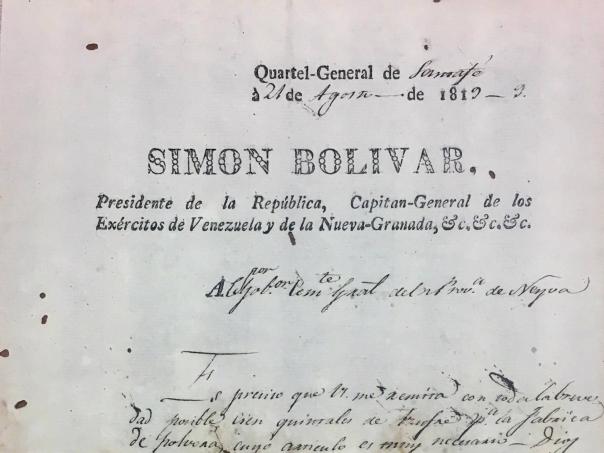 Quartel-General de Santafé
à 21 de Agosto de 1819 - 9.
SIMON BOLIVAR,
Presidente de la República, Capitan-General de los
Exércitos de Venezuela y de la Nueva-Granada, &c. &c. &c.
Al Gobor. Comte Gral del Prova de Neyva
Es preciso que U. me remita con toda la breve
dad posible cien quintales de pa. la fabrica
de polvora, cuyo articulo es muy necesario - Dios